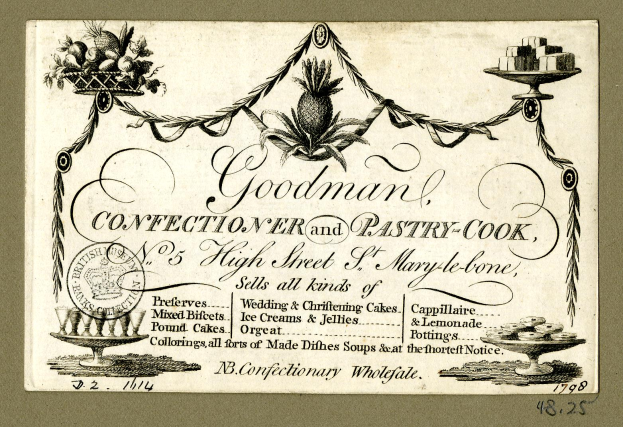 Goodman,
CONFECTIONER and PASTRY=COOK,
No. 5 High Street St. Mary-le-bone,
Sells all kinds of
Preserves
Mixed Biscets
Pound Cakes
Wedding & Christening Cakes
Ice Creams & Jellies
Orgeat
Cappillaire
& Lemonade
Pottings
Collorings, all sorts of Made Dishes Soups &c, at the shortest Notice.
NB. Confectionary Wholesale.
D,2. 1114
1798
48.25